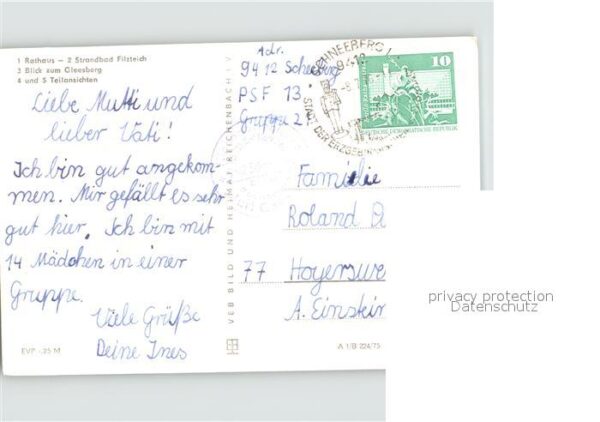 1 Rathaus — 2 Strandbad Filzteich
3 Blick zum Gleesberg
4 und 5 Teilansichten
Liebe Mutti und
lieber Vati!
Ich bin gut angekom-
men. Mir gefällt es sehr
gut hier. Ich bin mit
14 Mädchen in einer
Gruppe.
Viele Grüße
Deine Ines
EVP -,25 M
VEB BILD UND HEIMAT REICHENBACH I. V.
A 1/B 224/75
Adr.
9412 Scheeberg
PSF 13
Gruppe 21
SCHNEEBERG
9412
STADT DER
10
DEUTSCHE DEMOKRATISCHE REPUBLIK
Familie
Roland
77 Hoyerswe
A. Einstein
privacy protection
Datenschutz